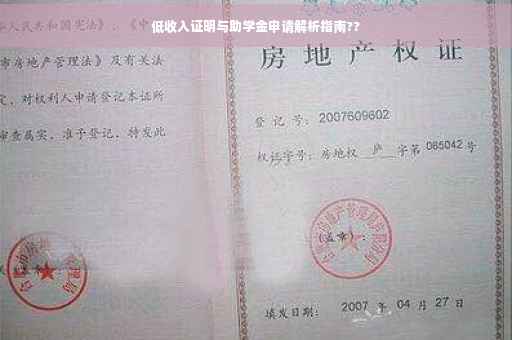 低收入证明与助学金申请解析指南??
人民共和国宪法》、《中
市房地产管理法》及有关法
定，对权利人申请登记本证所
审查属实，准予登记，特发此
房地产权证
登记号：2007609602
权证字号：房地权 庐 字第 085042 号
(盖章)：
填发日期：2007 年 04 月 27 日